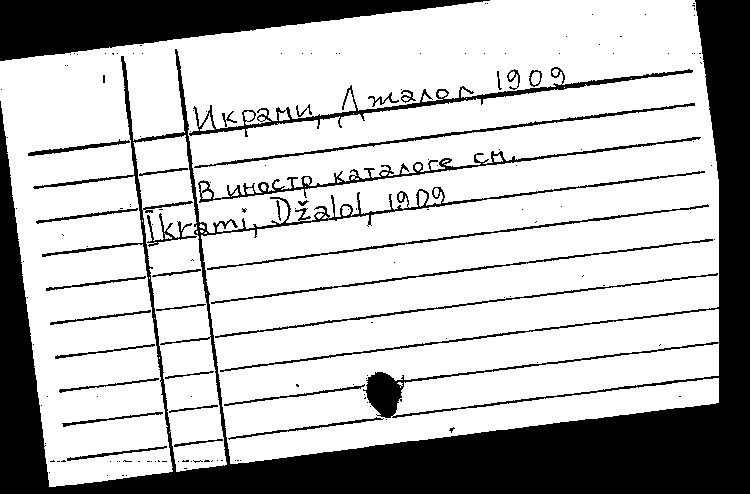 Икрами, Джалол, 1909
В иностр. каталоге см.
Ikrami, Džalol, 1909